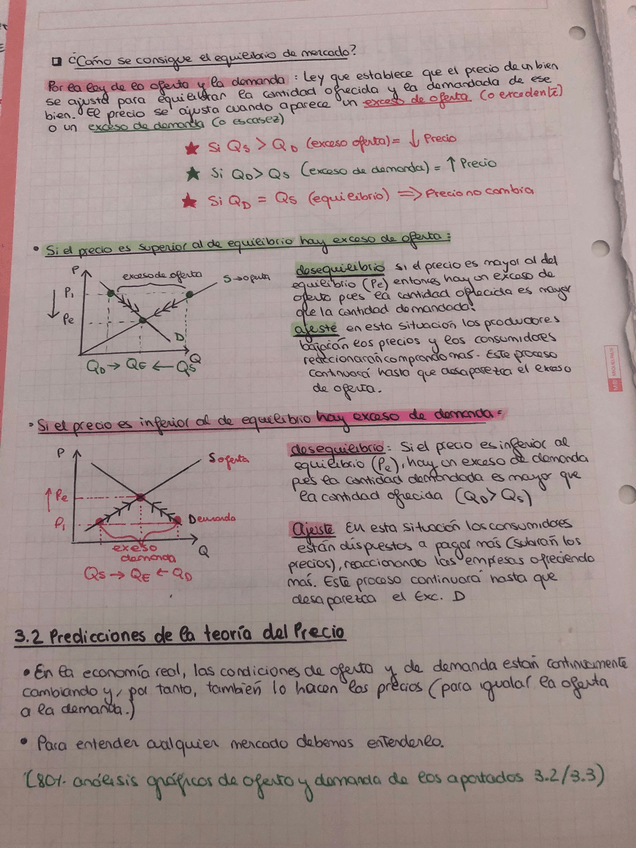 ¿Cómo se consigue el equilibrio de mercado?
Por la ley de la oferta y la demanda: Ley que establece que el precio de un bien
se ajusta para equilibrar la cantidad ofrecida y la demandada de ese
bien. El precio se ajusta cuando aparece un exceso de oferta (o excedente)
o un exceso de demanda (o escasez)
★ Si QS > QD (exceso oferta) = ↓ Precio
★ Si QD > QS (exceso de demanda) = ↑ Precio
★ Si QD = QS (equilibrio) => Precio no cambia
• Si el precio es superior al de equilibrio hay exceso de oferta:
P
exceso de oferta
S → oferta
P1
Pe
D
Q
QD → QE ← QS
desequilibrio si el precio es mayor al del
equilibrio (Pe) entonces hay un exceso de
oferta pues la cantidad ofrecida es mayor
que la cantidad demandada.
ajuste en esta situación los productores
bajarán los precios y los consumidores
reaccionarán comprando mas. Este proceso
continuará hasta que desaparezca el exceso
de oferta.
• Si el precio es inferior al de equilibrio hay exceso de demanda:
P
S oferta
↑ Pe
P1
Demanda
exeso
demanda
Q
QS → QE ← QD
desequilibrio: Si el precio es inferior al
equilibrio (Pe), hay un exceso de demanda
pues la cantidad demandada es mayor que
la cantidad ofrecida (QD > QS)
Ajuste En esta situación los consumidores
están dispuestos a pagar más (subirán los
precios), reaccionando las empresas ofreciendo
más. Este proceso continuará hasta que
desaparezca el Exc. D
3.2 Predicciones de la teoría del Precio
• En la economía real, las condiciones de oferta y de demanda están continuamente
cambiando y, por tanto, también lo hacen los precios (para igualar la oferta
a la demanda.)
• Para entender cualquier mercado debemos entenderlo.
(80% análisis gráficos de oferta y demanda de los apartados 3.2/3.3)